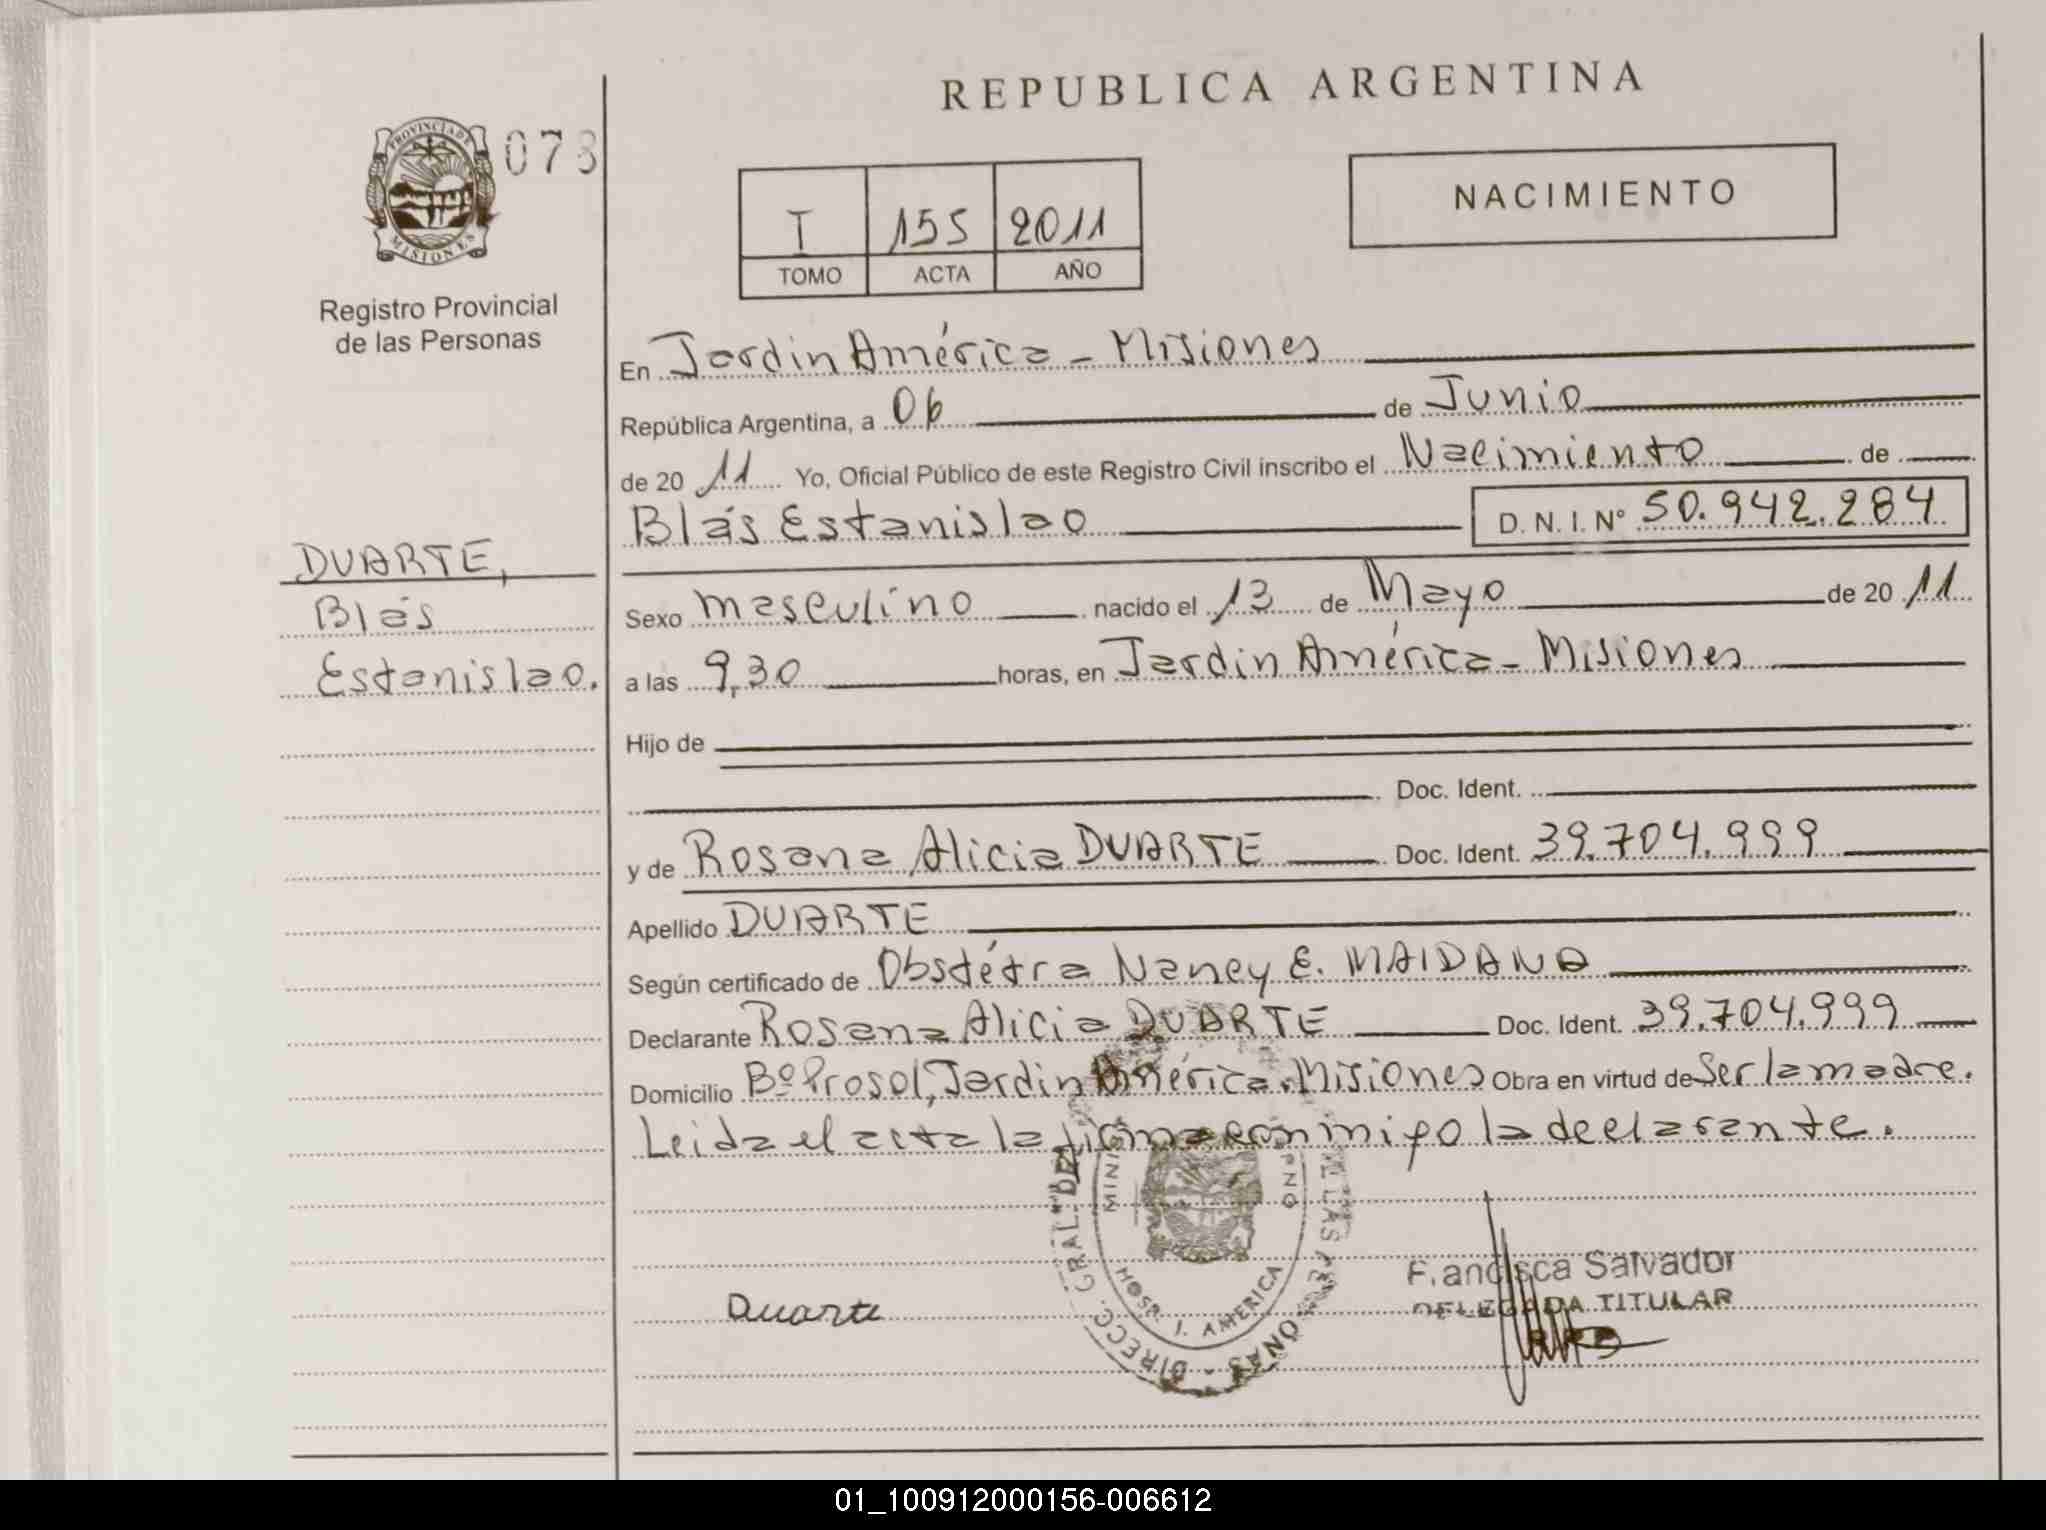 REPUBLICA ARGENTINA
PROVINCIA DE
MISIONES
073
NACIMIENTO
I 155 2011
TOMO ACTA AÑO
Registro Provincial
de las Personas
En Jardin América - Misiones
República Argentina, a 06 de Junio
de 20 11 Yo, Oficial Público de este Registro Civil inscribo el Nacimiento de
Blás Estanislao D. N. I. Nº 50.942.284
DUARTE,
Blás
Estanislao.
Sexo masculino nacido el 13 de Mayo de 20 11
a las 9,30 horas, en Jardin América - Misiones
Hijo de
Doc. Ident.
y de Rosana Alicia DUARTE Doc. Ident. 39.704.999
Apellido DUARTE
Según certificado de Obstétra Nancy E. MAIDANA
Declarante Rosana Alicia DUARTE Doc. Ident. 39.704.999
Domicilio Bº Prosol, Jardin América. Misiones Obra en virtud de Ser la madre.
Leida el acta la firma con migo la declarante.
DIRECC. GRAL. DE LAS PERSONAS
HOSP. J. AMERICA
Duarte
Francisca Salvador
DELEGADA TITULAR
01_100912000156-006612